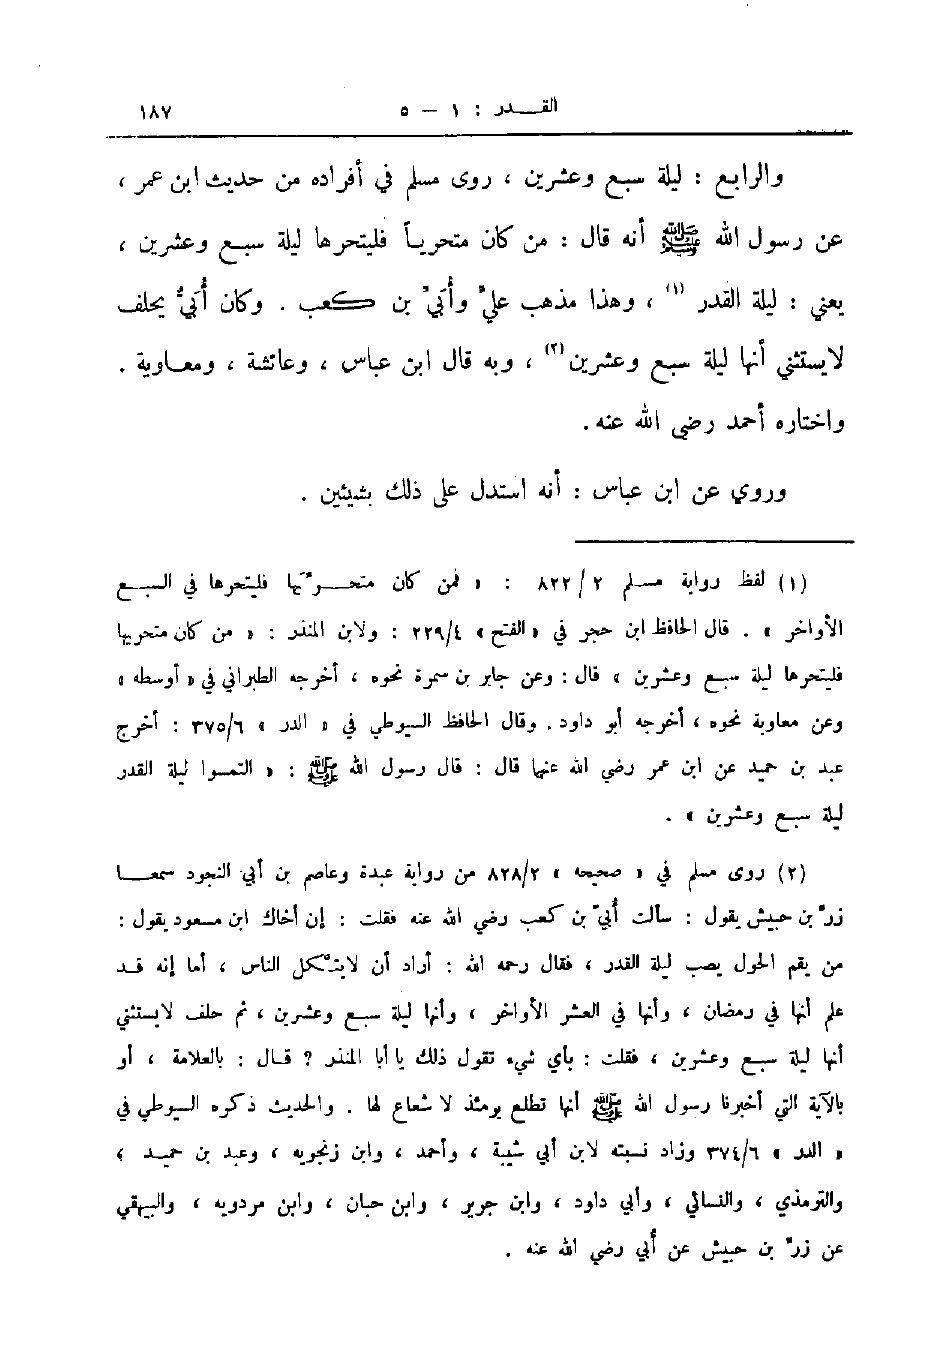 القـــدر : ١ – ٥ ١٨٧
والرابع : ليلة سبع وعشرين ، روى مسلم في أفراده من حديث ابن عمر ،
عن رسول الله ﷺ أنه قال : من كان متحرياً فليتحرها ليلة سبع وعشرين ،
يعني : ليلة القدر (١) ، وهذا مذهب عليّ وأُبَيّ بن كعب . وكان أُبَيٌّ يحلف
لايستثني أنها ليلة سبع وعشرين (٢) ، وبه قال ابن عباس ، وعائشة ، ومعاوية .
واختاره أحمد رضي الله عنه .
وروي عن ابن عباس : أنه استدل على ذلك بشيئين .
(١) لفظ رواية مسلم ٢ /٨٢٢ : « فمن كان متحــرّيَها فليتحرها في السبع
الأواخر » . قال الحافظ ابن حجر في « الفتح » ٢٢٩/٤ : ولابن المنذر : « من كان متحريها
فليتحرها ليلة سبع وعشرين » قال : وعن جابر بن سمرة نحوه ، أخرجه الطبراني في « أوسطه »
وعن معاوية نحوه ، أخرجه أبو داود . وقال الحافظ السيوطي في « الدر » ٣٧٥/٦ : أخرج
عبد بن حميد عن ابن عمر رضي الله عنهما قال : قال رسول الله ﷺ : « التمسوا ليلة القدر
ليلة سبع وعشرين » .
(٢) روى مسلم في « صحيحه » ٨٢٨/٢ من رواية عبدة وعاصم بن أبي النجود سمعـــا
زرّ بن حبيش يقول : سألت أُبيّ بن كعب رضي الله عنه فقلت : إن أخاك ابن مسعود يقول :
من يقم الحول يصب ليلة القدر ، فقال رحمه الله : أراد أن لايتّكل الناس ، أما إنه قـد
علم أنها في رمضان ، وأنها في العشر الأواخر ، وأنها ليلة سبع وعشرين ، ثم حلف لايستثني
أنها ليلة سبع وعشرين ، فقلت : بأي شيء تقول ذلك يا أبا المنذر ؟ قـال : بالعلامة ، أو
بالآية التي أخبرنا رسول الله ﷺ أنها تطلع يومئذ لا شعاع لها . والحديث ذكره السيوطي في
« الدر » ٣٧٤/٦ وزاد نسبته لابن أبي شيبة ، وأحمد ، وابن زنجويه ، وعبد بن حميد ،
والترمذي ، والنسائي ، وأبي داود ، وابن جرير ، وابن حبان ، وابن مردويه ، والبيهقي
عن زرّ بن حبيش عن أُبي رضي الله عنه .